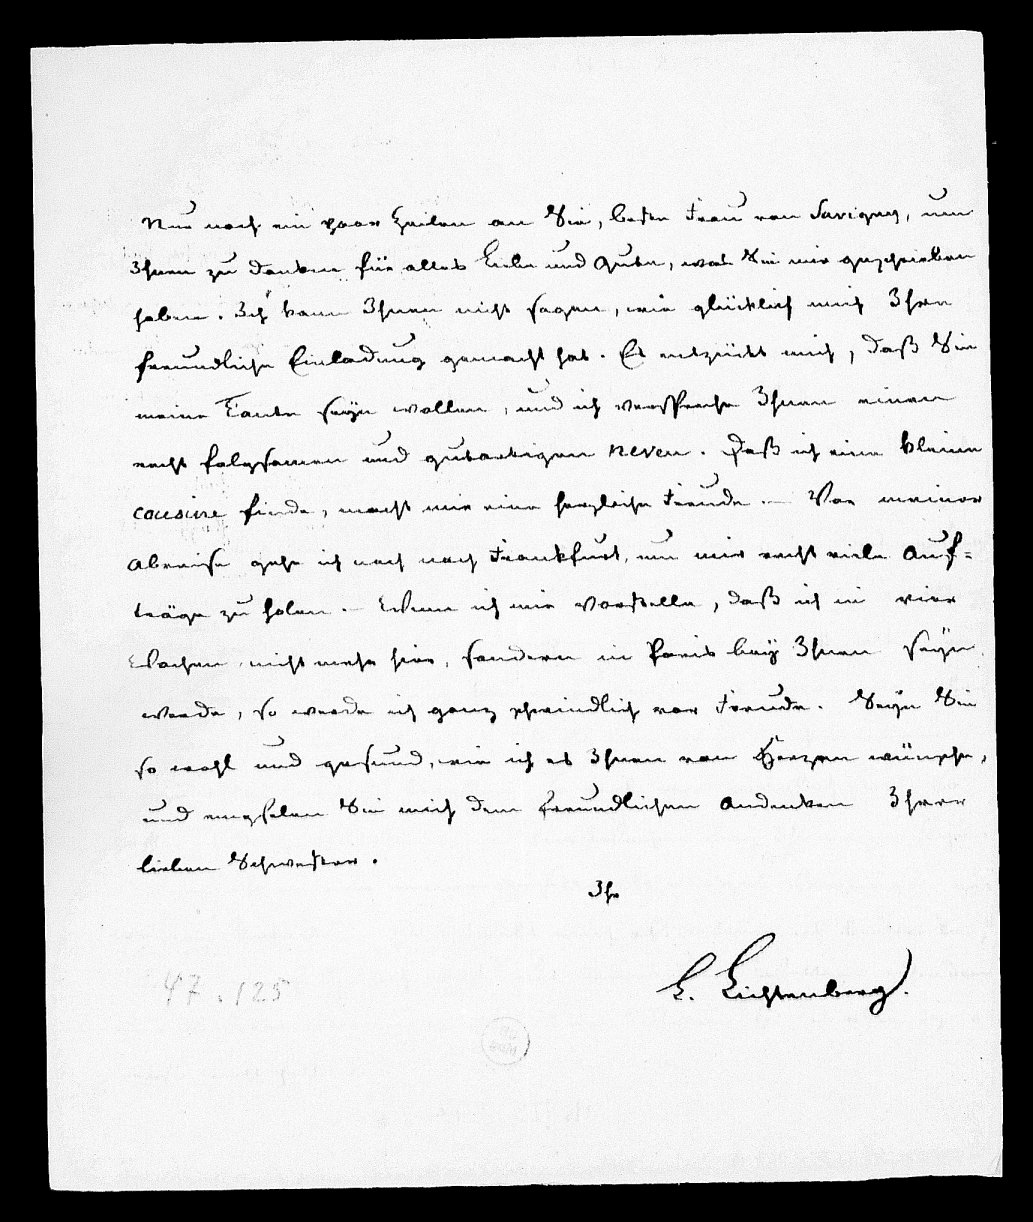 Nur noch ein paar Zeilen an Sie, beste Frau von Savigny, um
Ihnen zu danken für alles Liebe und Gute, was Sie mir geschrieben
haben. Ich kann Ihnen nicht sagen, wie glücklich mich Ihre
freundliche Einladung gemacht hat. Es entzückt mich, daß Sie
meine Tante seyn wollen, und ich verspreche Ihnen einen
recht folgsamen und gutartigen neveu. Daß ich eine kleine
cousine finde, macht mir eine herzliche Freude. – Vor meiner
Abreise gehe ich noch nach Frankfurt, um mir recht viele Auf=
träge zu holen. – Wenn ich mir vorstelle, daß ich in vier
Wochen nicht mehr hier, sondern in Paris bey Ihnen seyn
werde, so werde ich ganz schwindlich vor Freude. Seyn Sie
so wohl und gesund, wie ich es Ihnen von Herzen wünsche,
und empfelen Sie mich dem freundlichen Andenken Ihrer
lieben Schwester.
Ihr
L. Lichtenberg.
47.125